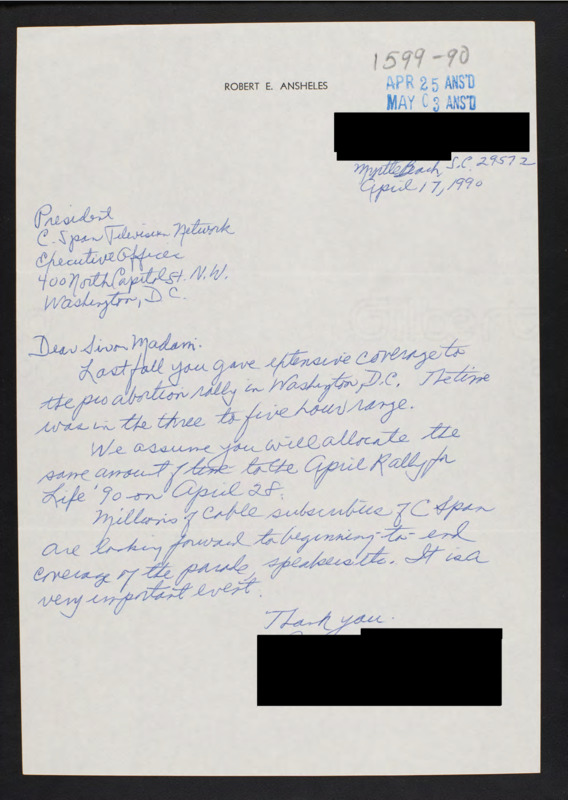 1599-90
ROBERT E. ANSHELES
APR 25 ANS'D
MAY 03 ANS'D
Myrtle Beach, S.C. 29572
April 17, 1990
President
C. Span Television Network
Executive Offices
400 North Capitol St. N.W.
Washington, D.C.
Dear Sir or Madam.
Last fall you gave extensive coverage to
the pro abortion rally in Washington, D.C. The time
was in the three to five hour range.
We assume you will allocate the
same amount of time to the April Rally for
Life '90 on April 28.
Millions of cable subscribers of C Span
are looking forward to beginning-to-end
coverage of the parade, speakers etc. It is a
very important event.
Thank you.